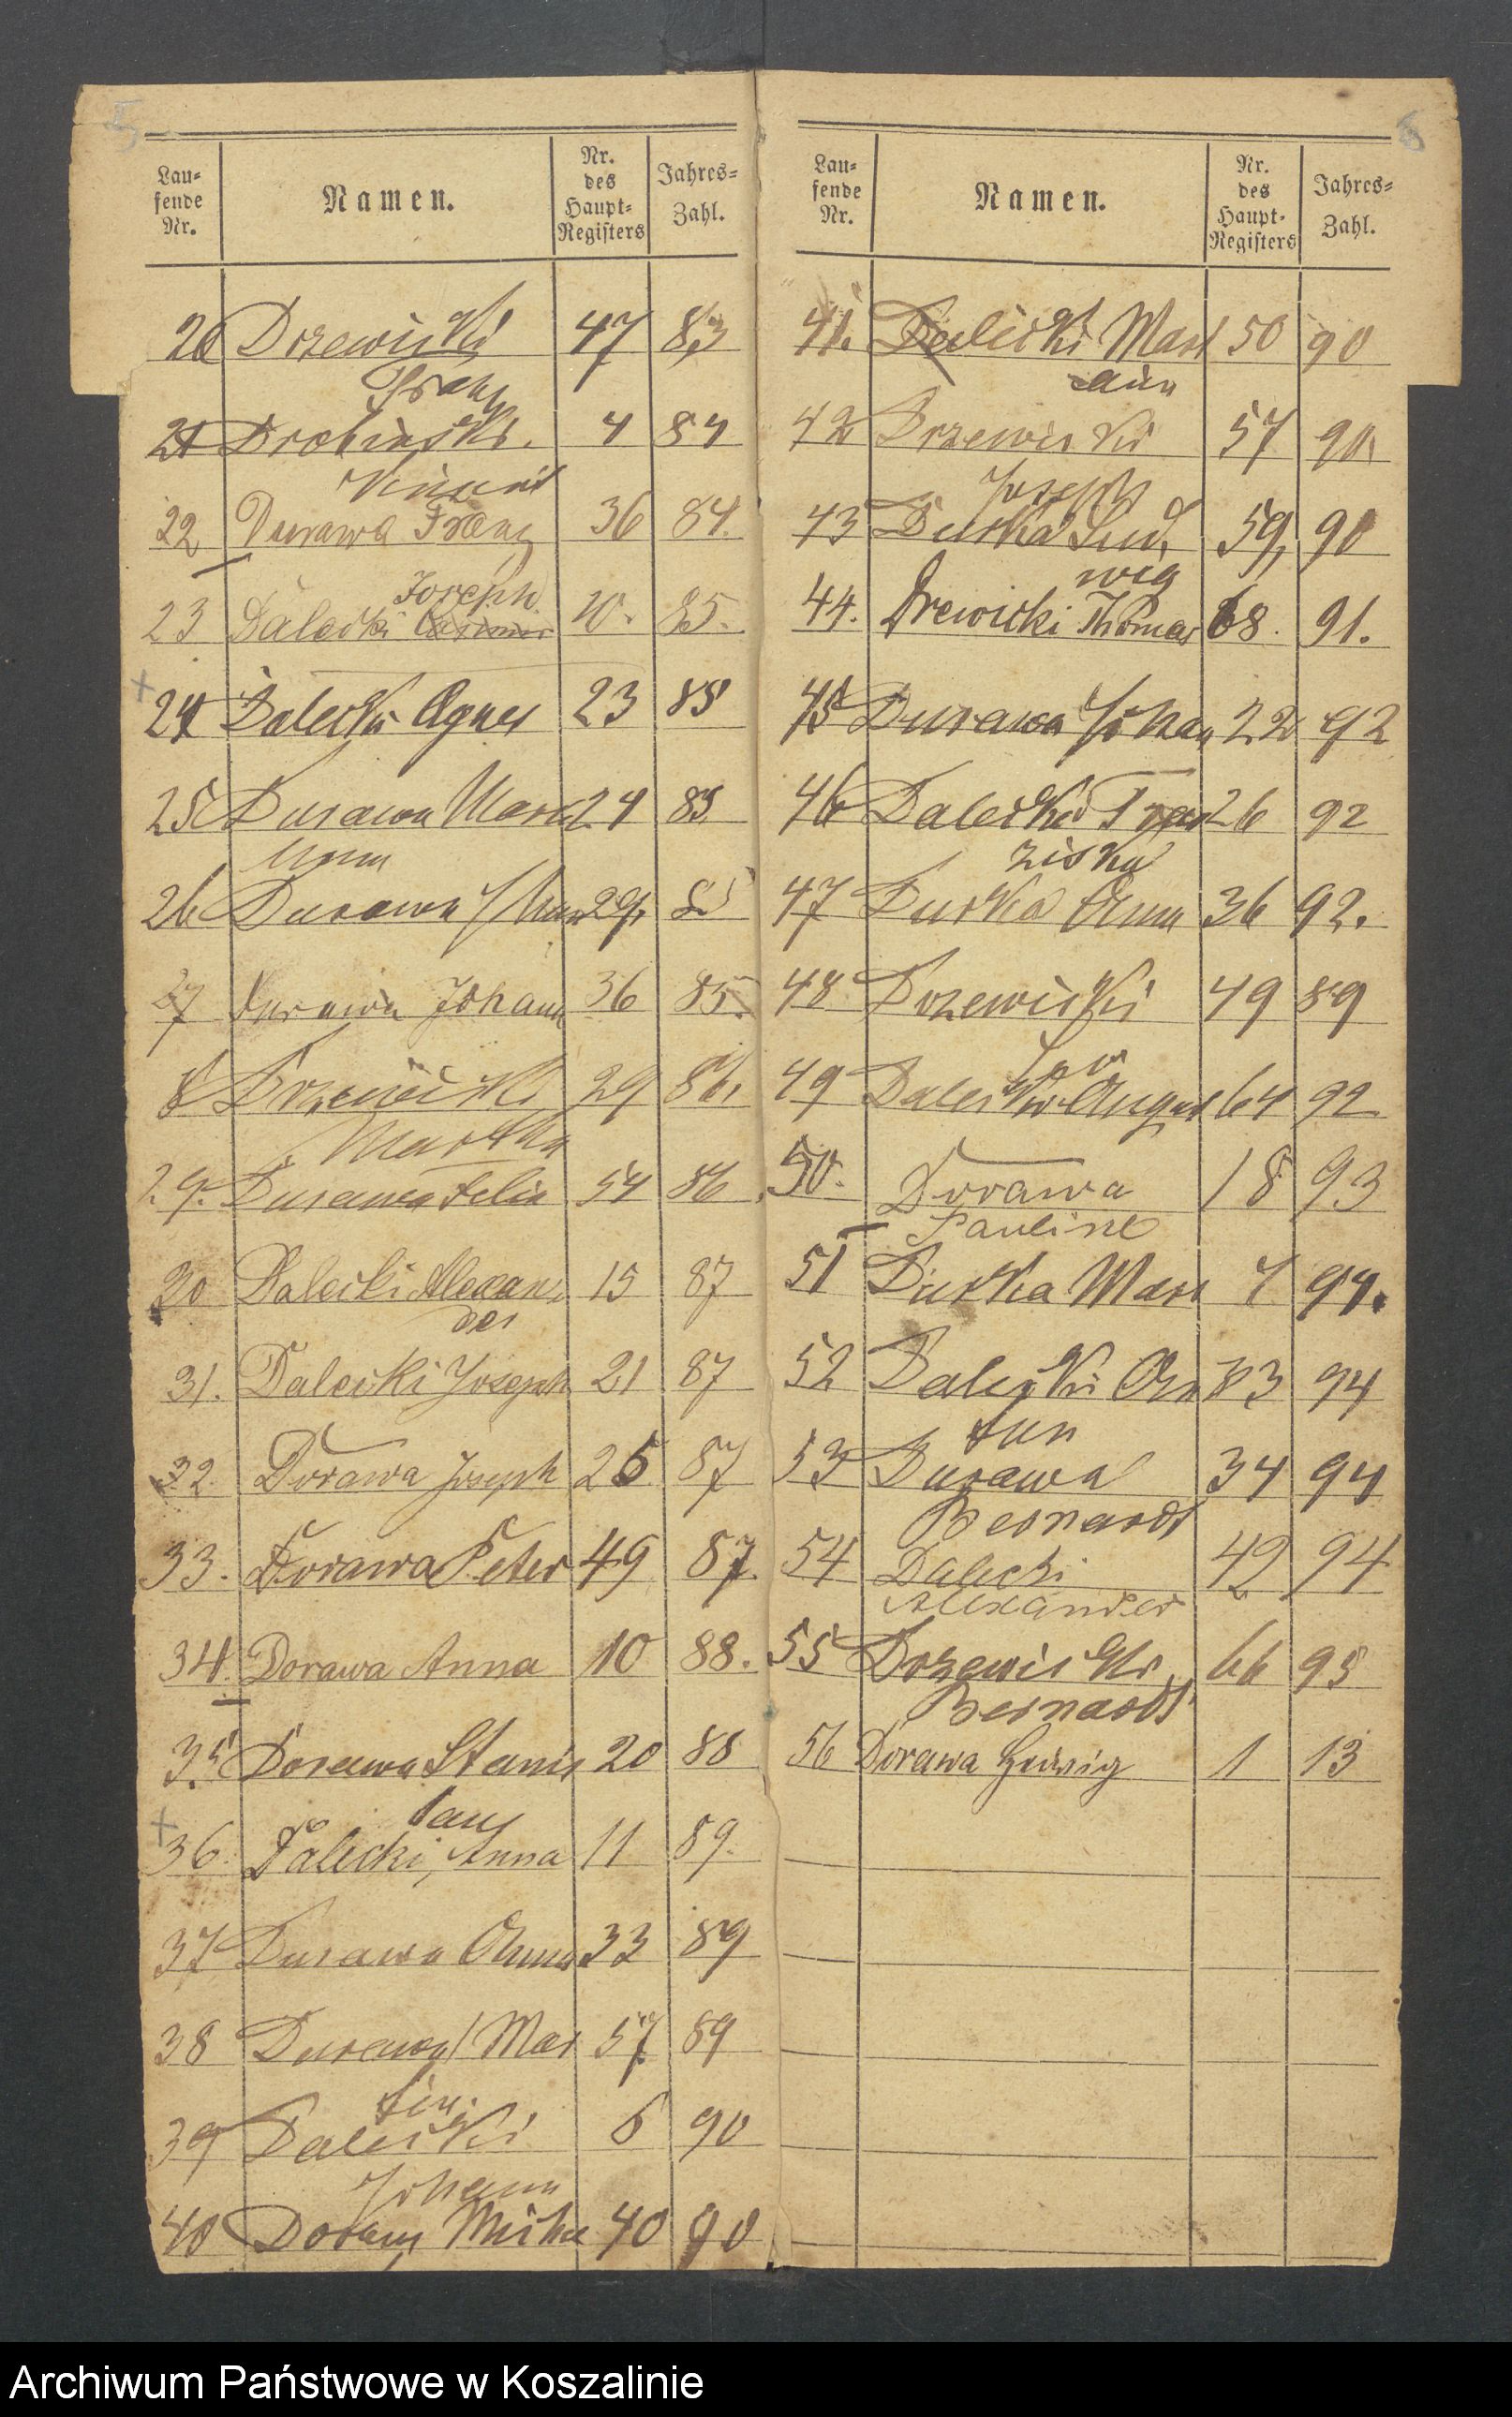 5
Lau-
fende
Nr.
Namen.
Nr.
des
Haupt-
Registers
Jahres-
Zahl.
20 Drzewicki 47 83
Franz
21 Drobinski. 4 84
Vincent
22 Durawa Franz 36 84.
Joseph
23 Dalecki 10. 85.
24 Dalecki Agnes 23 85
25 Durawa 24 85
26 Durawa 29, 85
27 Durawa Johann 36 85.
8 Drzewicki 29 86,
Martha
29. Durawa Felix 54 86
30 Dalecki Alexan- 15 87
der
31. Dalecki Joseph 21 87
32. Dorawa Joseph 26 87
33. Dorawa Peter 49 87.
34. Dorawa Anna 10 88.
35 Dorawa Stanis 20 88
laus
36. Dalecki, Anna 11 89.
37 Durawa Anna 33 89
38 Durawa Mar 57 89
tin.
39 Dalecki 6 90
Johann
40 40 90
6
Lau-
fende
Nr.
Namen.
Nr.
des
Haupt-
Registers
Jahres-
Zahl.
41. Dalecki 50 90
42 Drzewicki 57 90,
Joseph
43 Dutka Lud, 59, 90
wig
44. Drewicki Thomas 68. 91.
45 Durawa Johan 22 92
46 Dalecki Fran 26 92
ziska
47 Dutka Anna 36 92.
48 Drzewicki 49 89
49 Dalecki August 64 92
50. Dorawa 18 93
Pauline
51 Dutka 7 94.
52 Dalecki 33 94
53 Durawa 34 94
Bernardt
54 Dalecki 42 94
Alexander
55 Drzewicki, 66 95
Bernardt
56 Dorawa Hedwig 1 13
Archiwum Państwowe w Koszalinie